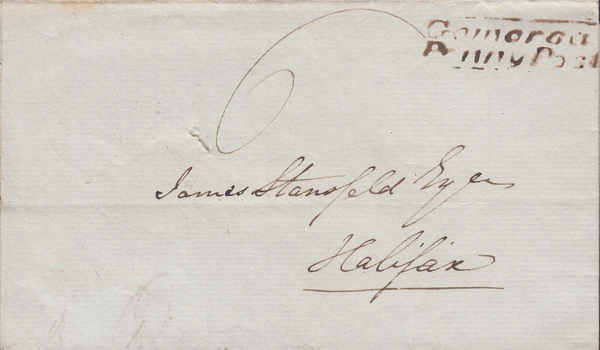 Gomersal
Penny Post
6
James Stansfeld Esqre
Halifax